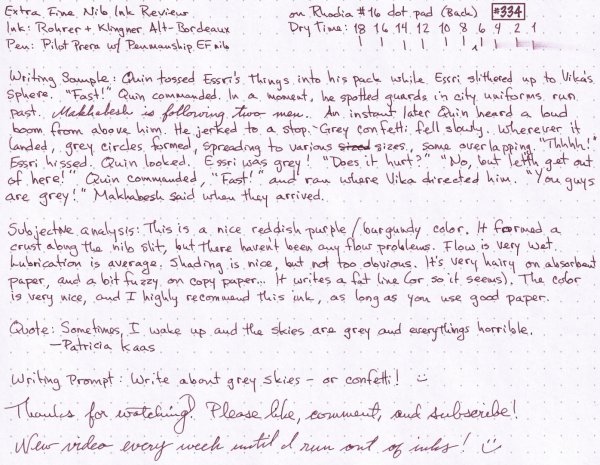 Extra Fine Nib Ink Review on Rhodia #16 dot pad (Back) #334
Ink: Rohrer + Klingner Alt-Bordeaux Dry Time: 18 16 14 12 10 8 6 4 2 1
Pen: Pilot Prera w/ Penmanship EF nib
Writing Sample: Quin tossed Essri's things into his pack while Essri slithered up to Vika's
sphere. "Fast!" Quin commanded. In a moment, he spotted guards in city uniforms run
past. Makhabesh is following two men. An instant later Quin heard a loud
boom from above him. He jerked to a stop. Grey confetti fell slowly. Wherever it
landed, grey circles formed, spreading to various sized sizes, some overlapping. "Thhhh!"
Essri hissed. Quin looked. Essri was grey! "Does it hurt?" "No, but letth get out
of here!" Quin commanded, "Fast!" and ran where Vika directed him. "You guys
are grey!" Makhabesh said when they arrived.
Subjective analysis: This is a nice reddish purple/burgundy color. It formed a
crust along the nib slit, but there haven't been any flow problems. Flow is very wet.
Lubrication is average. Shading is nice, but not too obvious. It's very hairy on absorbent
paper, and a bit fuzzy on copy paper... It writes a fat line (or so it seems). The color
is very nice, and I highly recommend this ink, as long as you use good paper.
Quote: Sometimes, I wake up and the skies are grey and everythings horrible.
—Patricia Kaas
Writing Prompt: Write about grey skies - or confetti!
Thanks for watching! Please like, comment, and subscribe!
New video every week until I run out of inks!